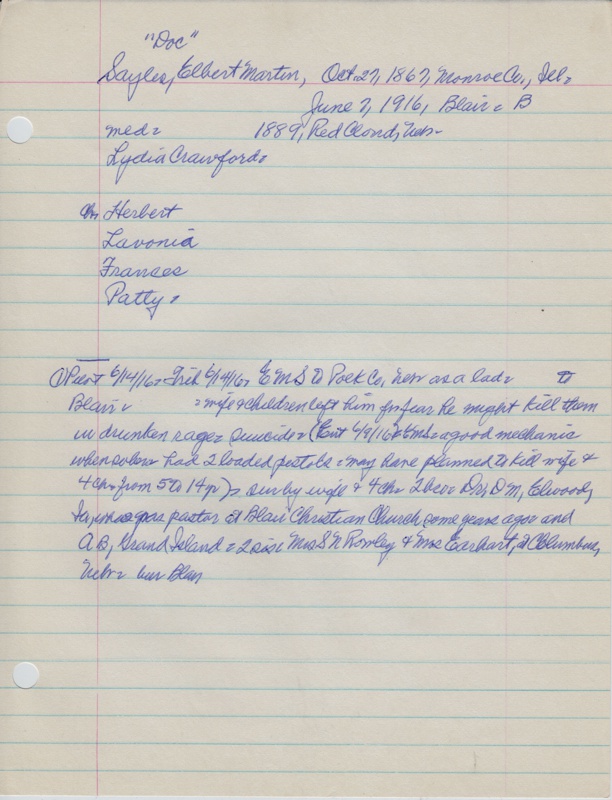 "Doc"
Sayles, Elbert Martin, Oct. 27, 1867, Monroe Co., Ill.
June 7, 1916, Blair. B
med. 1889, Red Cloud, Neb.
Lydia Crawford.
ch. Herbert
Lavonia
Frances
Patty.
(1) 6/14/16. Trib 6/14/16. EMS to Polk Co, Nebr as a lad. to
Blair. = wife & children left him for fear he might kill them
in drunken rage = suicide = (Ent 6/9/16 EMS = a good mechanic
when sober had 2 loaded pistols = may have planned to kill wife &
4 ch. from 5 to 14 yr) = sur by wife & 4 ch. 2 bro = Dr, D M, Elwood,
Ia, who was pastor at Blair Christian Church some years ago and
A B, Grand Island = 2 sis: Mrs S N Rowley & Mrs Earhart, at Columbus,
Nebr. bur Blair